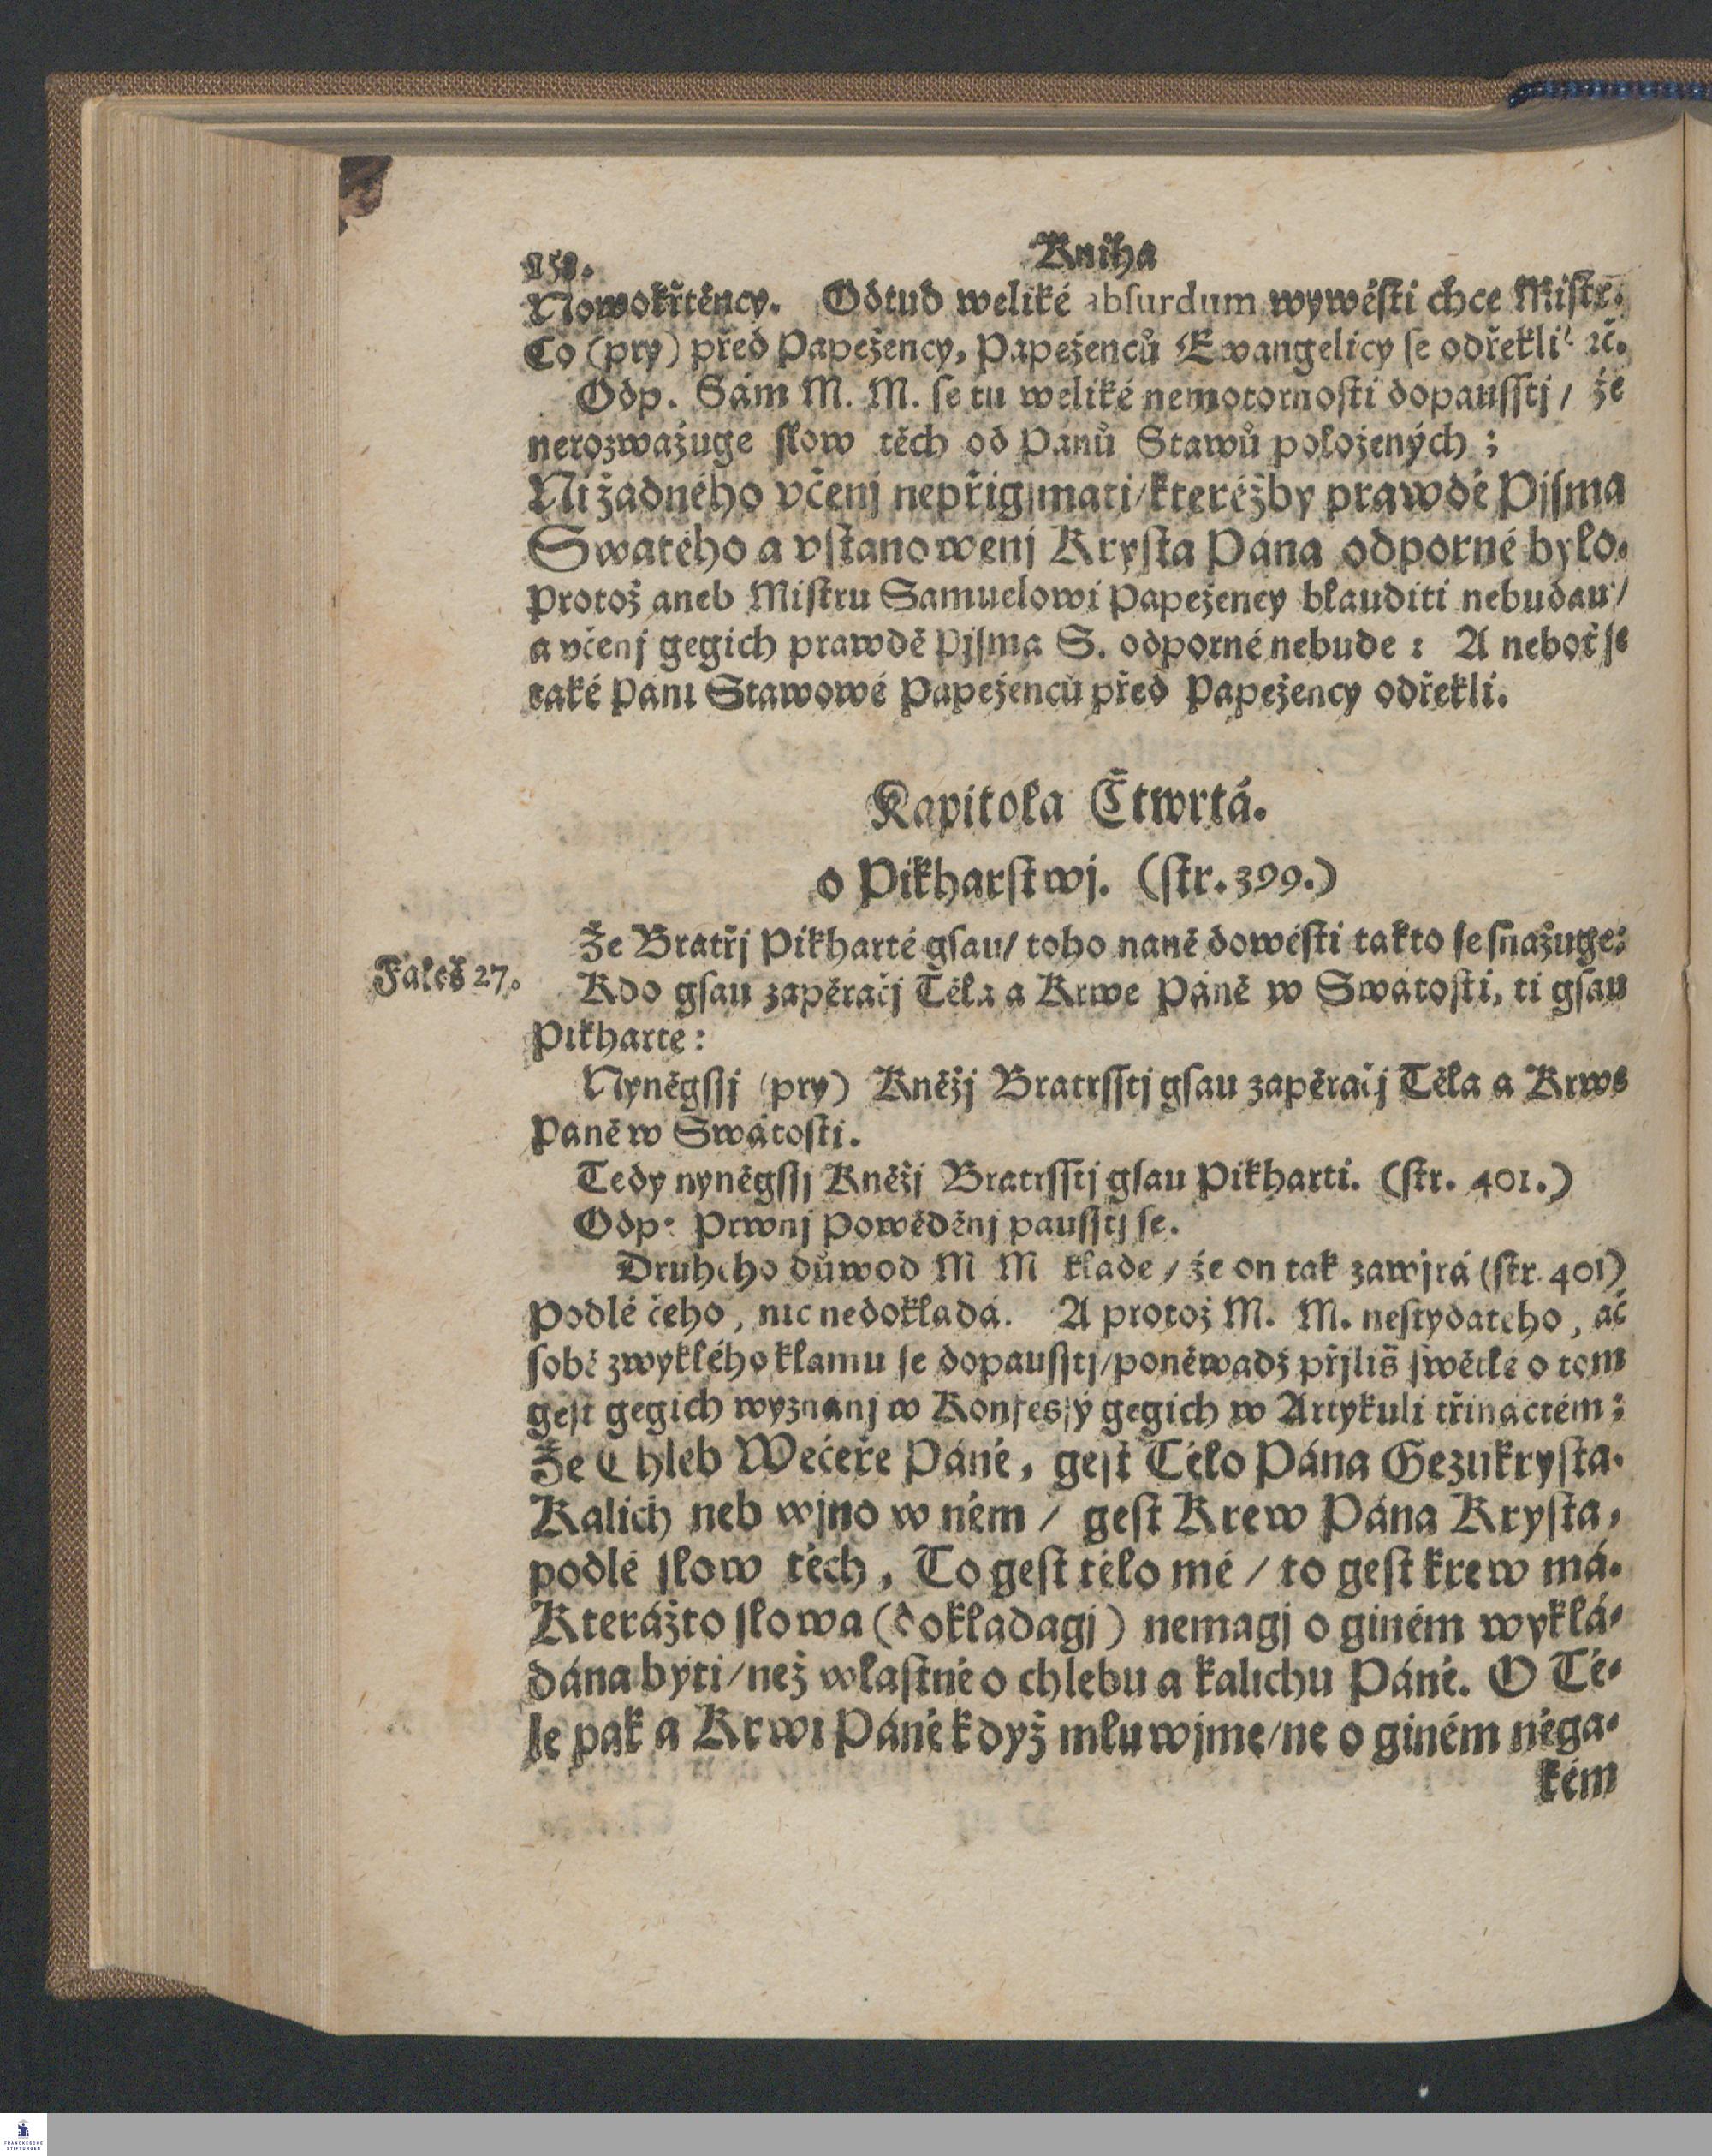 Kniha
Nowokřtěncy. Odtud weliké absurdum wywésti chce Mistr.
Co (pry) před Papežency, Papeženců Ewangelicy se odřekli? ꝛč.
Odp. Sám M. M. se tu weliké nemotornosti dopausstj / že
nerozwažuge slow těch od Pánů Stawů položených;
Nižádného včenj nepřigjmati / kteréžby prawdě Pjsma
Swatého a vstanowenj Krysta Pána odporné bylo.
Protož aneb Mistru Samuelowi Papežency blauditi nebudau /
a včenj gegich prawdě Pjsma S. odporné nebude: A neboť se
také Páni Stawowé Papeženců před Papežency odřekli.
Kapitola Čtwrtá.
o Pikharstwj. (str. 399.)
Že Bratřj Pikharté gsau / toho naně dowésti takto se snažuge:
Faleš 27.
Kdo gsau zapěračj Těla a Krwe Páně w Swátosti, ti gsau
Pikharté:
Nyněgssj (pry) Kněžj Bratrsstj gsau zapěračj Těla a Krwe
Páně w Swátosti.
Tedy nyněgssj Kněžj Bratrsstj gsau Pikharti. (str. 401.)
Odp. Prwnj powěděnj pausstj se.
Druhého důwod M M klade / že on tak zawjrá (str. 401)
Podlé čeho, nic nedokládá. A protož M. M. nestydatého, ač
sobě zwyklého klamu se dopausstj / poněwadž přjliš swětlé o tom
gest gegich wyznánj w Konfessý gegich w Artykuli třináctém:
Že Chléb Wečeře Páně, gest Tělo Pána Gezukrysta.
Kalich neb wjno w něm / gest Krew Pána Krysta,
podlé slow těch, To gest tělo mé / to gest krew má.
Kterážto slowa (dokládagj) nemagj o giném wyklá-
dána býti / než wlastně o chlebu a kalichu Páně. O Tě-
le pak a Krwi Páně když mluwjme / ne o giném něga-
kém